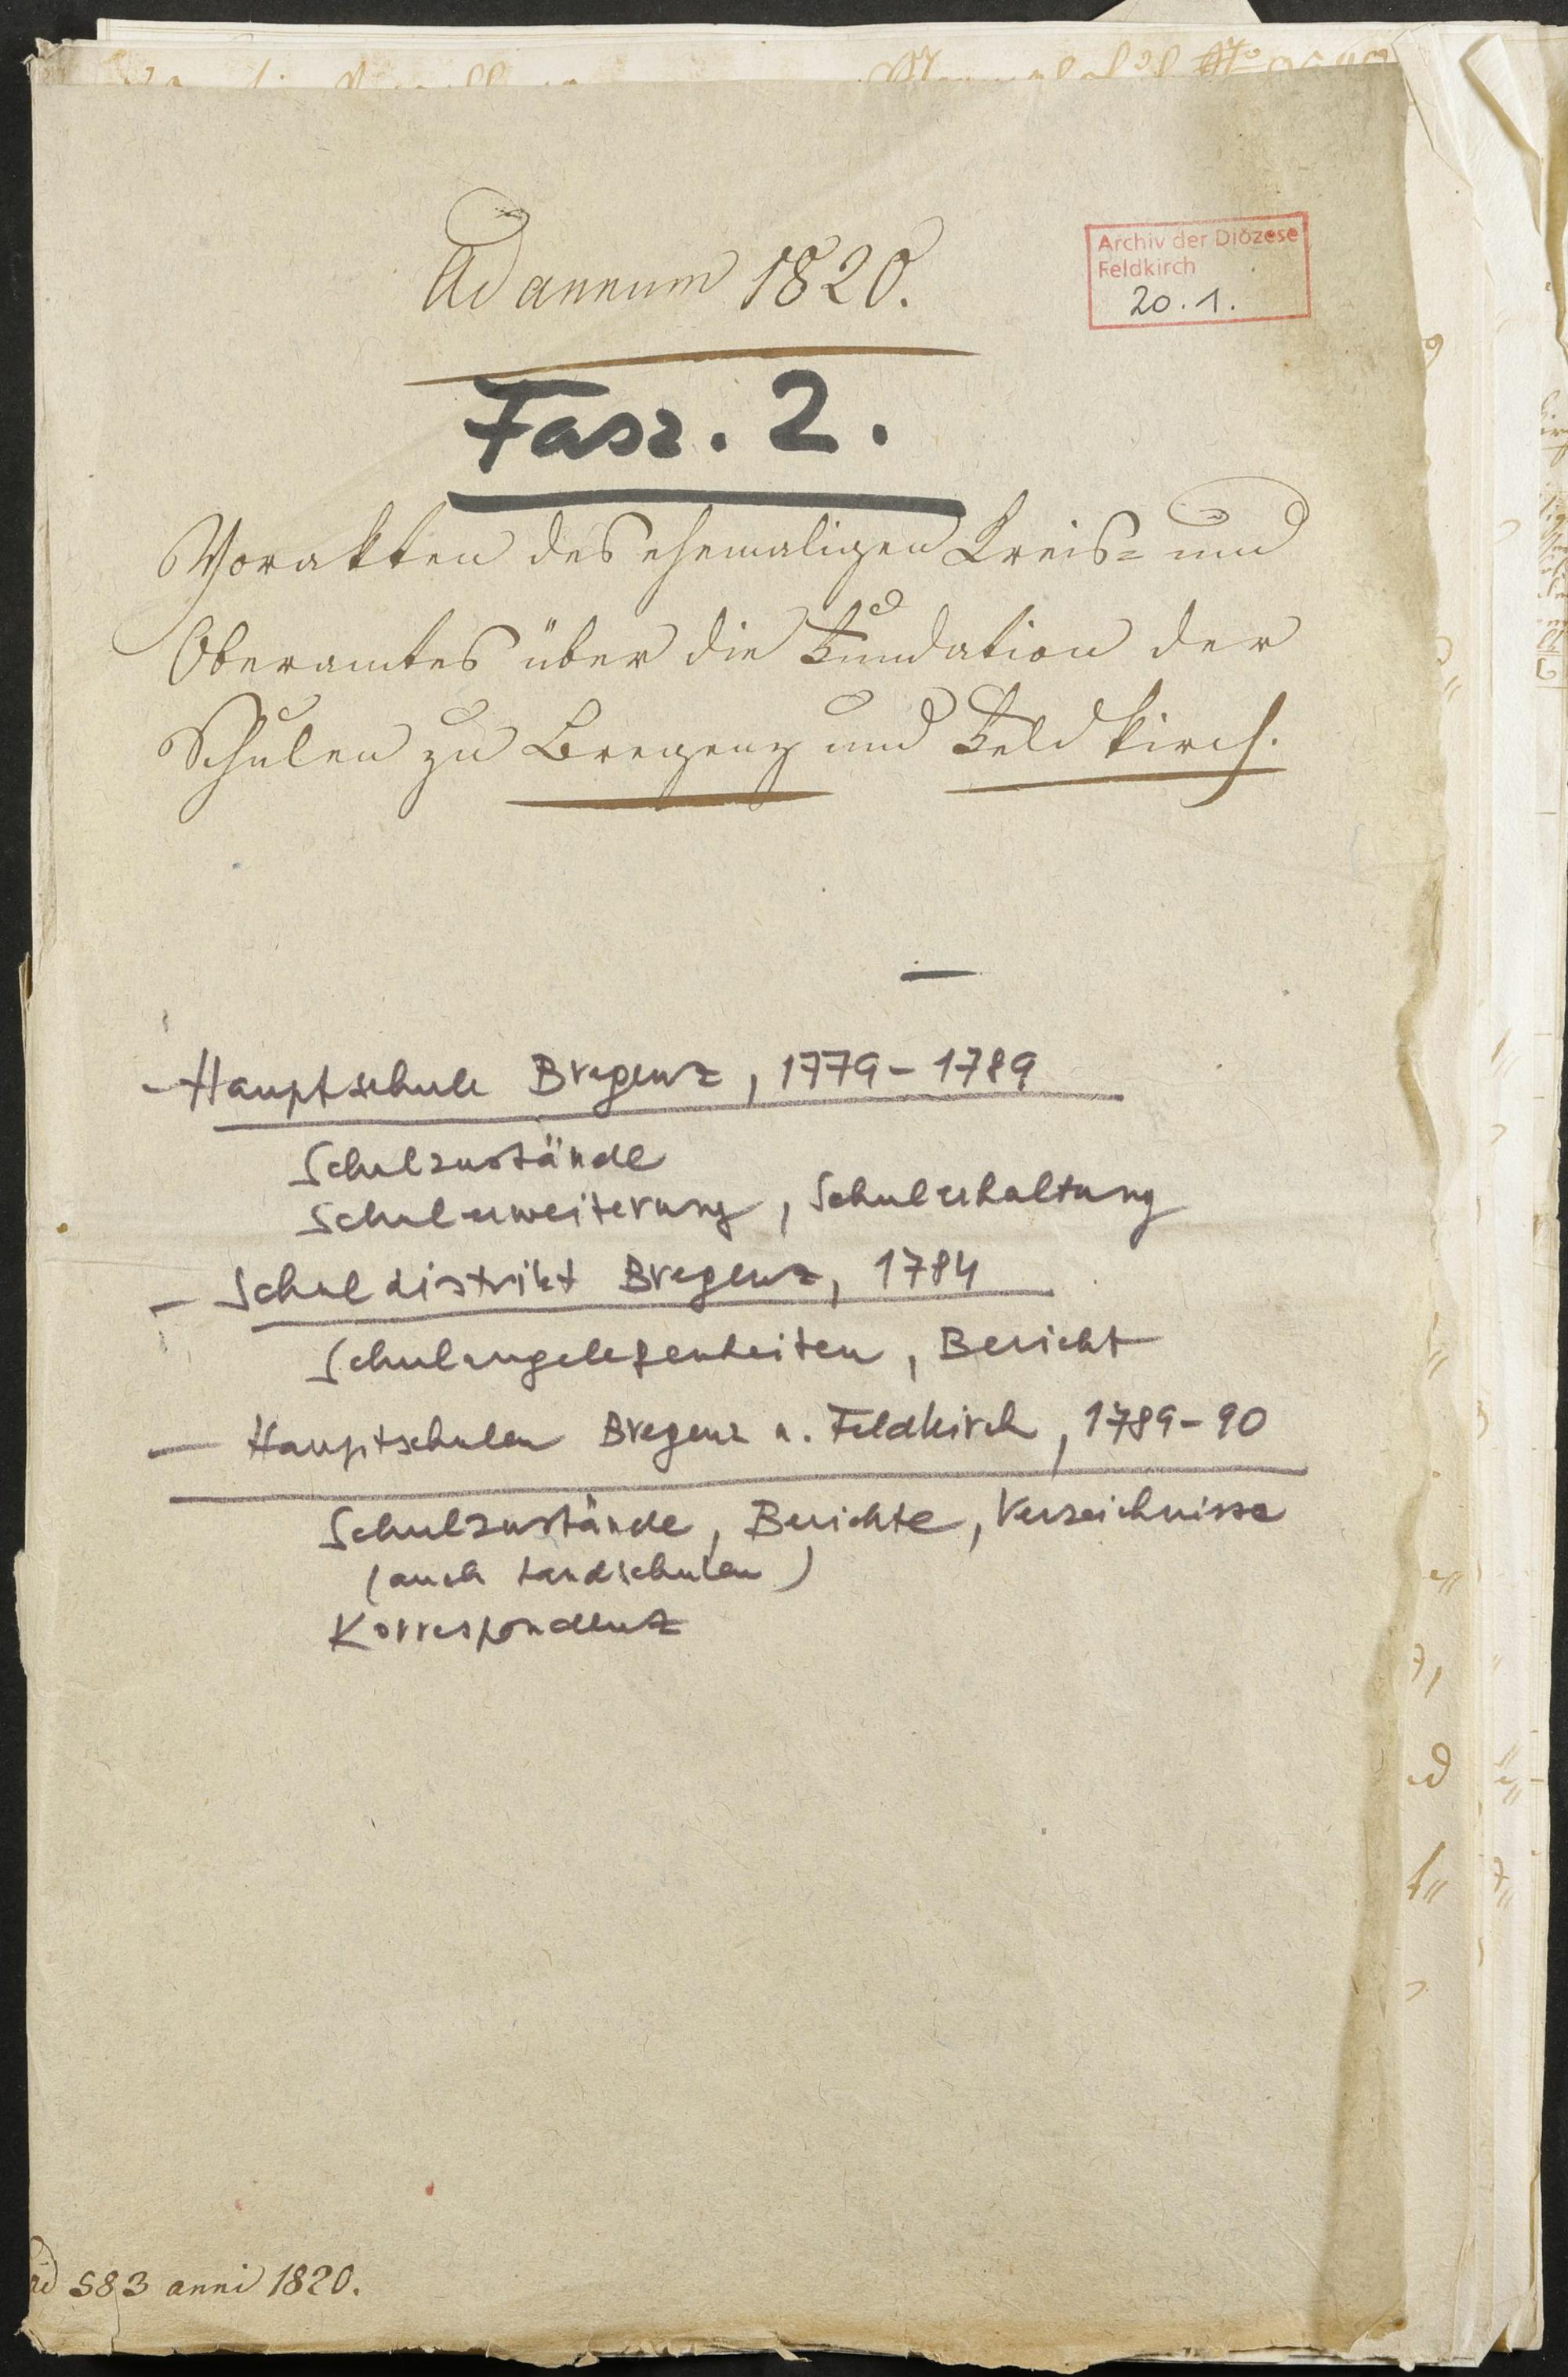 Ad annum 1820.
Archiv der Diözese
Feldkirch
20.1.
Fasz. 2.
Vorakten des ehemaligen Kreis= und
Oberamtes über die Fundation der
Schulen zu Bregenz und Feldkirch.
- Hauptschule Bregenz, 1779-1789
Schulzustände
Schulerweiterung, Schulerhaltung
- Schuldistrikt Bregenz, 1784
Schulangelegenheiten, Bericht
- Hauptschulen Bregenz u. Feldkirch, 1789-90
Schulzustände, Berichte, Verzeichnisse
(auch Landschulen)
Korrespondenz
ad 583 anni 1820.